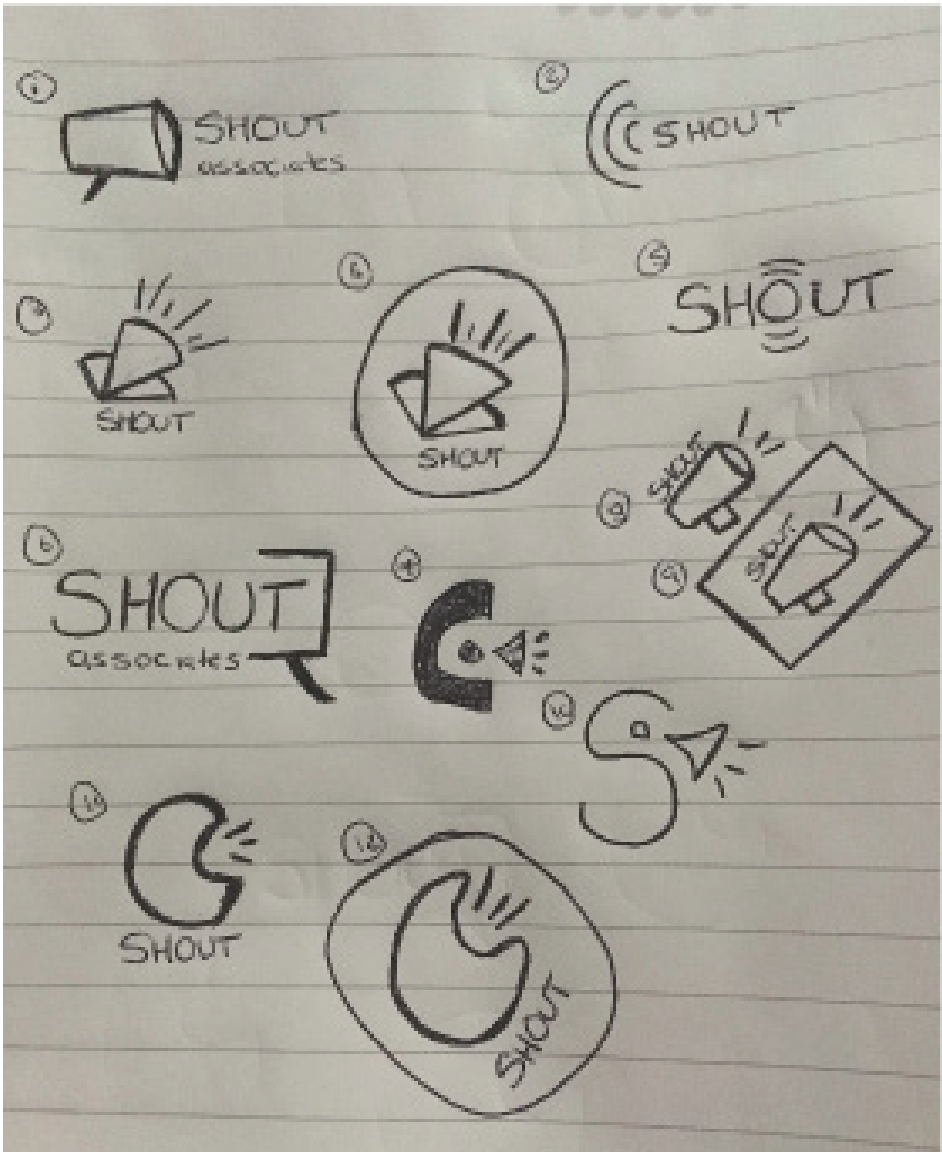 1
SHOUT
associates
2
SHOUT
3
SHOUT
SHOUT
5
SHOUT
SHOUT
9
SHOUT
6
SHOUT
associates
SHOUT
12
SHOUT